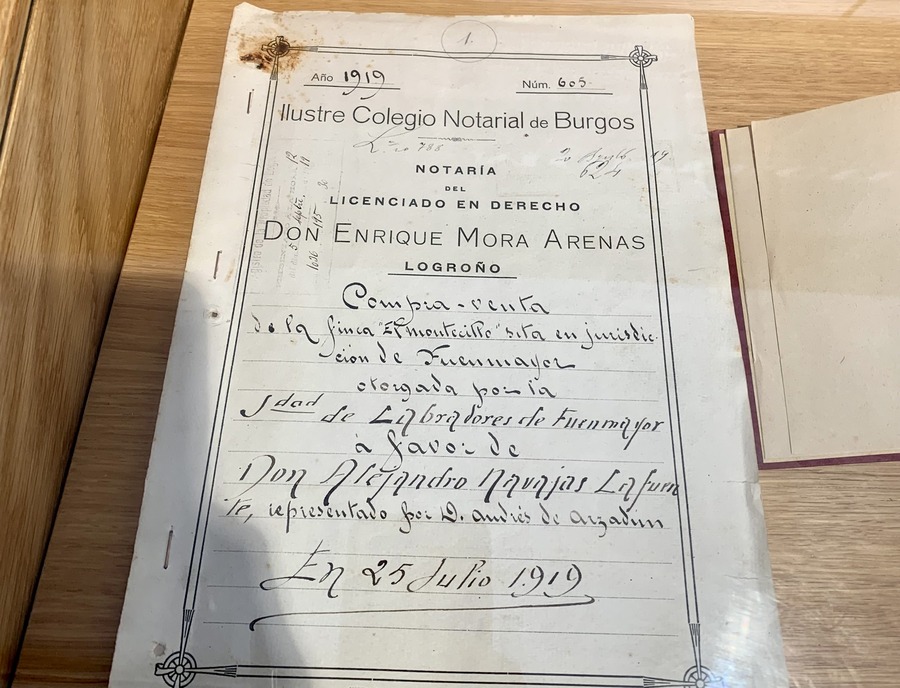 1.
Año 1919 Núm. 605
Ilustre Colegio Notarial de Burgos
788
624
NOTARÍA
DEL
LICENCIADO EN DERECHO
DON ENRIQUE MORA ARENAS
LOGROÑO
Compra-venta
de la finca "El montecillo" sita en jurisdic-
ción de Fuenmayor
otorgada por la
Sdad de Labradores de Fuenmayor
á favor de
Don Alejandro Navajas Lafuen
te, representado por D. Andrés de Arzadun
En 25 Julio 1919